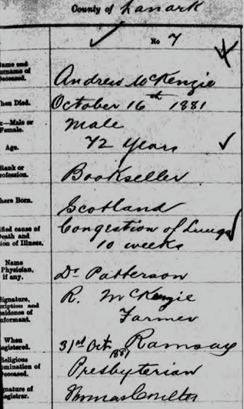 County of Lanark
No 7
Name and
Surname of
Deceased.
Andrew McKenzie
When Died.
October 16th 1881
—Male or
Female.
Male
Age.
72 Years
Rank or
Profession.
Bookseller
Where Born.
Scotland
Certified cause of
Death and
ion of Illness.
Congestion of Lungs
10 weeks
Name
Physician,
if any.
Dr Patterson
Signature,
scription and
sidence of
nformant.
R. McKenzie
Farmer
Ramsay
When
Registered.
31st Oct
1881
Religious
omination of
Deceased.
Presbyterian
nature of
Registrar.
Thomas Coulter